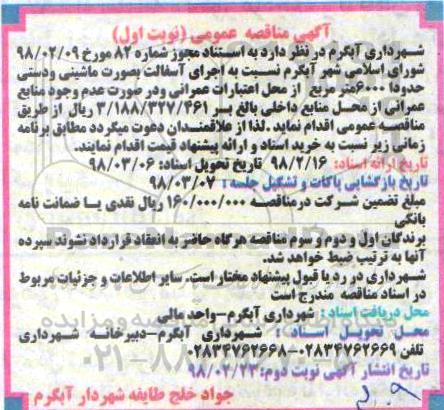 آگهی مناقصه عمومی (نوبت اول)
شهرداری آبگرم در نظر دارد به استناد مجوز شماره ۸۲ مورخ ۹۸/۰۲/۰۹
شورای اسلامی شهر آبگرم نسبت به اجرای آسفالت بصورت ماشینی ودستی
حدودا ۶۰۰۰متر مربع از محل اعتبارات عمرانی ودر صورت عدم وجود منابع
عمرانی از محل منابع داخلی بالغ بر ۳/۱۸۸/۳۲۷/۴۶۱ ریال از طریق
مناقصه عمومی اقدام نماید .لذا از علاقمندان دعوت میگردد مطابق برنامه
زمانی زیر نسبت به خرید اسناد و ارائه پیشنهاد قیمت اقدام نمایند.
تاریخ ارائه اسناد: ۹۸/۲/۱۶ تاریخ تحویل اسناد: ۹۸/۰۳/۰۶
تاریخ بازگشایی پاکات و تشکیل جلسه : ۹۸/۰۳/۰۷
مبلغ تضمین شرکت در مناقصه ۱۶۰/۰۰۰/۰۰۰ ریال نقدی یا ضمانت نامه
بانکی
برندگان اول و دوم و سوم مناقصه هرگاه حاضر به انعقاد قرارداد نشوند سپرده
آنها به ترتیب ضبط خواهد شد.
شهرداری در رد یا قبول پیشنهاد مختار است. سایر اطلاعات و جزئیات مربوط
در اسناد مناقصه مندرج است
محل دریافت اسناد : شهرداری آبگرم-واحد مالی
محل تحویل اسناد : شهرداری آبگرم-دبیرخانه شهرداری
تلفن ۰۲۸۳۴۷۶۲۶۶۹-۰۲۸۳۴۷۶۲۶۶۸
تاریخ انتشار آگهی نوبت دوم: ۹۸/۰۲/۲۳
جواد خلج طایفه شهردار آبگرم